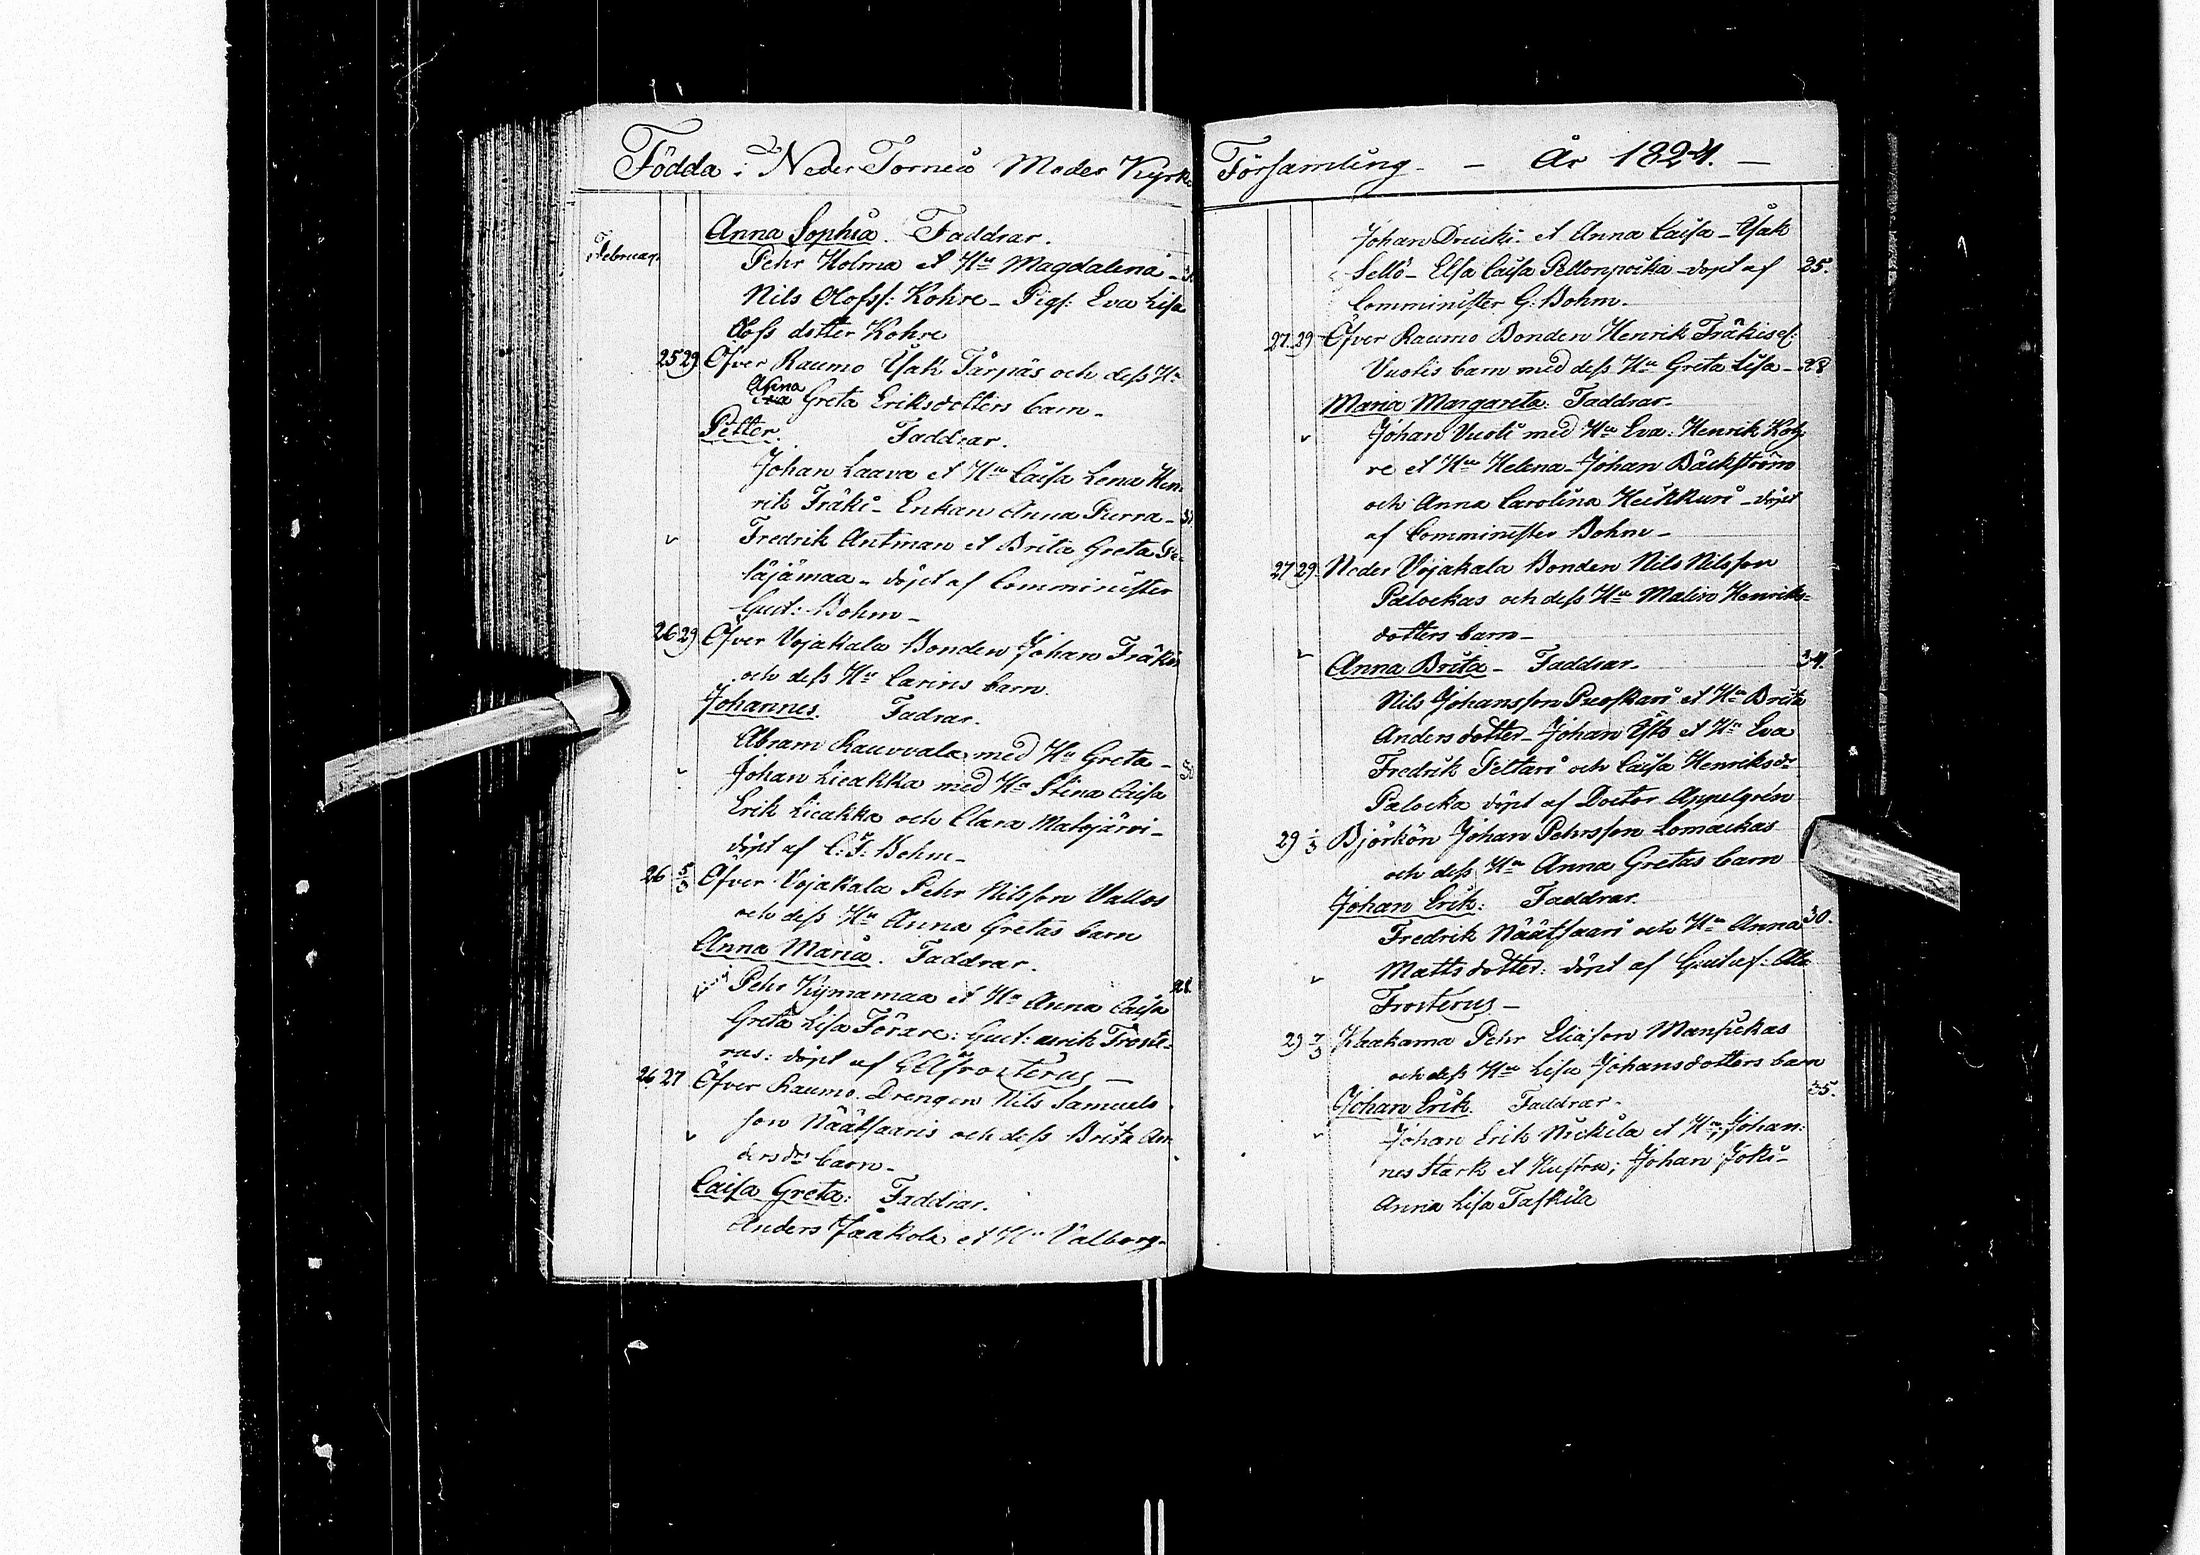 Födda i Neder Torneå Moder Kyrko
Februari
Anna Sophia. Faddrar.
Pehr Holma et Hu Magdalena -
Nils Olofss: Kohre - Pig: Eva Lisa
Olofs dotter Kohre
25 29 Öfver Raumo Isak Tärpäs och dess Hu
Anna
Greta Eriksdotters barn -
Petter. Faddrar.
Johan Laava et Hu Caisa Lena Hen
rik Träki - Enkan Anna Pierra -
Fredrik Antman et Brita Greta
läjämaa - döpt af Comminister
Gust: Bohm -
26 29 Öfver Vojakala Bonden Johan Träkis
och dess Hu Carins barn.
Johannes. Fadrar.
Abram Rauvvala med Hu Greta -
Johan Lieakka med Hu Stina Caisa
Erik Lieakka och Clara Matojärvi -
döpt af Bohm -
26 5/3 Öfver Vojakala Pehr Nilsson Vallos
och dess Hu Anna Gretas barn
Anna Maria. Faddrar.
Pehr Kymamaa et Hu Anna Caisa 28.
Greta Lisa Förare: Gust: Froste-
rus: döpt af Frosterus -
26 27 Öfver Raumo Drengen Nils Samuels
son Näätsaaris och dess Brita An
dersdrs barn -
Caisa Greta: Faddrar.
Anders Jaakola et Hu Valborg -
Församling - År 1824. -
Johan Drucki - et Anna Caisa - Isak
Sellö - Elsa Caisa Pellonpoika - döpt af 25.
Comminister G: Bohm -
27 29 Öfver Raumo Bonden Henrik Träkis
Vuotis barn med dess Hu Greta Lisa - 28
Maria Margareta. Faddrar -
Johan Vuoti med Hu Eva: Henrik Koh
re et Hu Helena - Johan Bäckström
och Anna Carolina Heikkuri - döpt
af Comminister Bohm -
27 29 Neder Vojakala Bonden Nils Nilsson
Palockas och dess Hu Malin Henriks-
dotters barn -
Anna Brita - Faddrar. 34.
Nils Johansson Puoskari et Hu Brita
Anders dotter - Johan et Hu Eva
Fredrik Pettari och Caisa Henriksdr
Palocka döpt af Doctor Appelgrén
29 1/3 Björkön Johan Pehrsson Lomackas
och dess Hu Anna Gretas barn
Johan Erik: Faddrar.
Fredrik Näätsaari och Hu Anna 30.
Matts dotter: döpt af Gustaf:
Frosterus -
29 7/3 Kaakama Pehr Eliasson Mansikas
och dess Hu Lisa Johansdotters barn
Johan Erik. Faddrar - 35.
Johan Erik Nickila et Hu; Johan-
nes Stark et Hustru; Johan Joki -
Anna Lisa Taskila